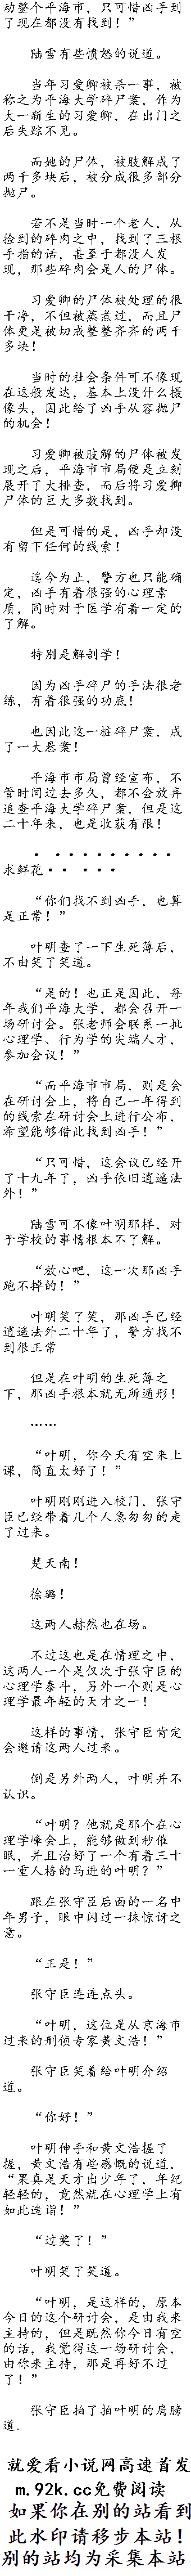 动整个平海市，只可惜凶手到
了现在都没有找到！”
陆雪有些愤怒的说道。
当年习爱卿被杀一事，被
称之为平海大学碎尸案，作为
大一新生的习爱卿，在出门之
后失踪不见。
而她的尸体，被肢解成了
两千多块后，被分成很多部分
抛尸。
若不是当时一个老人，从
捡到的碎肉之中，找到了三根
手指的话，甚至于都没人发
现，那些碎肉会是人的尸体。
习爱卿的尸体被处理的很
干净，不但被蒸煮过，而且尸
体更是被切成整整齐齐的两千
多块！
当时的社会条件可不像现
在这般发达，基本上没什么摄
像头，因此给了凶手从容抛尸
的机会！
习爱卿被肢解的尸体被发
现之后，平海市市局便是立刻
展开了大排查，而后将习爱卿
尸体的巨大多数找到。
但是可惜的是，凶手却没
有留下任何的线索！
迄今为止，警方也只能确
定，凶手有着很强的心理素
质，同时对于医学有着一定的
了解。
特别是解剖学！
因为凶手碎尸的手法很老
练，有着很强的功底！
也因此这一桩碎尸案，成
了一大悬案！
平海市市局曾经宣布，不
管时间过去多久，都不会放弃
追查平海大学碎尸案，但是这
二十年来，也是收获有限！
· · · · · · · · · ·
求鲜花·· · ···
“你们找不到凶手，也算
是正常！”
叶明查了一下生死薄后，
不由笑了笑道。
“是的！也正是因此，每
年我们平海大学，都会召开一
场研讨会。张老师会联系一批
心理学、行为学的尖端人才，
参加会议！”
“而平海市市局，则是会
在研讨会上，将自己一年得到
的线索在研讨会上进行公布，
希望能够借此找到凶手！”
“只可惜，这会议已经开
了十九年了，凶手依旧逍遥法
外！”
陆雪可不像叶明那样，对
于学校的事情根本不了解。
“放心吧，这一次那凶手
跑不掉的！”
叶明笑了笑，那凶手已经
逍遥法外二十年了，警方找不
到很正常
但是在叶明的生死薄之
下，那凶手根本就无所遁形！
……
“叶明，你今天有空来上
课，简直太好了！”
叶明刚刚进入校门，张守
臣已经带着几个人急匆匆的走
了过来。
楚天南！
徐璐！
这两人赫然也在场。
不过这也是在情理之中，
这两人一个是仅次于张守臣的
心理学泰斗，另外一个则是心
理学最年轻的天才之一！
这样的事情，张守臣肯定
会邀请这两人过来。
倒是另外两人，叶明并不
认识。
“叶明？他就是那个在心
理学峰会上，能够做到秒催
眠，并且治好了一个有着三十
一重人格的马进的叶明？”
跟在张守臣后面的一名中
年男子，眼中闪过一抹惊讶之
意。
“正是！”
张守臣连连点头。
“叶明，这位是从京海市
过来的刑侦专家黄文浩！”
张守臣笑着给叶明介绍
道。
“你好！”
叶明伸手和黄文浩握了
握，黄文浩有些感慨的说道，
“果真是天才出少年了，年纪
轻轻的，竟然就在心理学上有
如此造诣！”
“过奖了！”
叶明笑了笑道。
“叶明，是这样的，原本
今日的这个研讨会，是由我来
主持的，但是既然你今日有空
的话，我觉得这一场研讨会，
由你来主持，那是再好不过
了！”
张守臣拍了拍叶明的肩膀
道.
就爱看小说网高速首发
m.92k.cc免费阅读
如果你在别的站看到
此水印请移步本站！
别的站均为采集本站